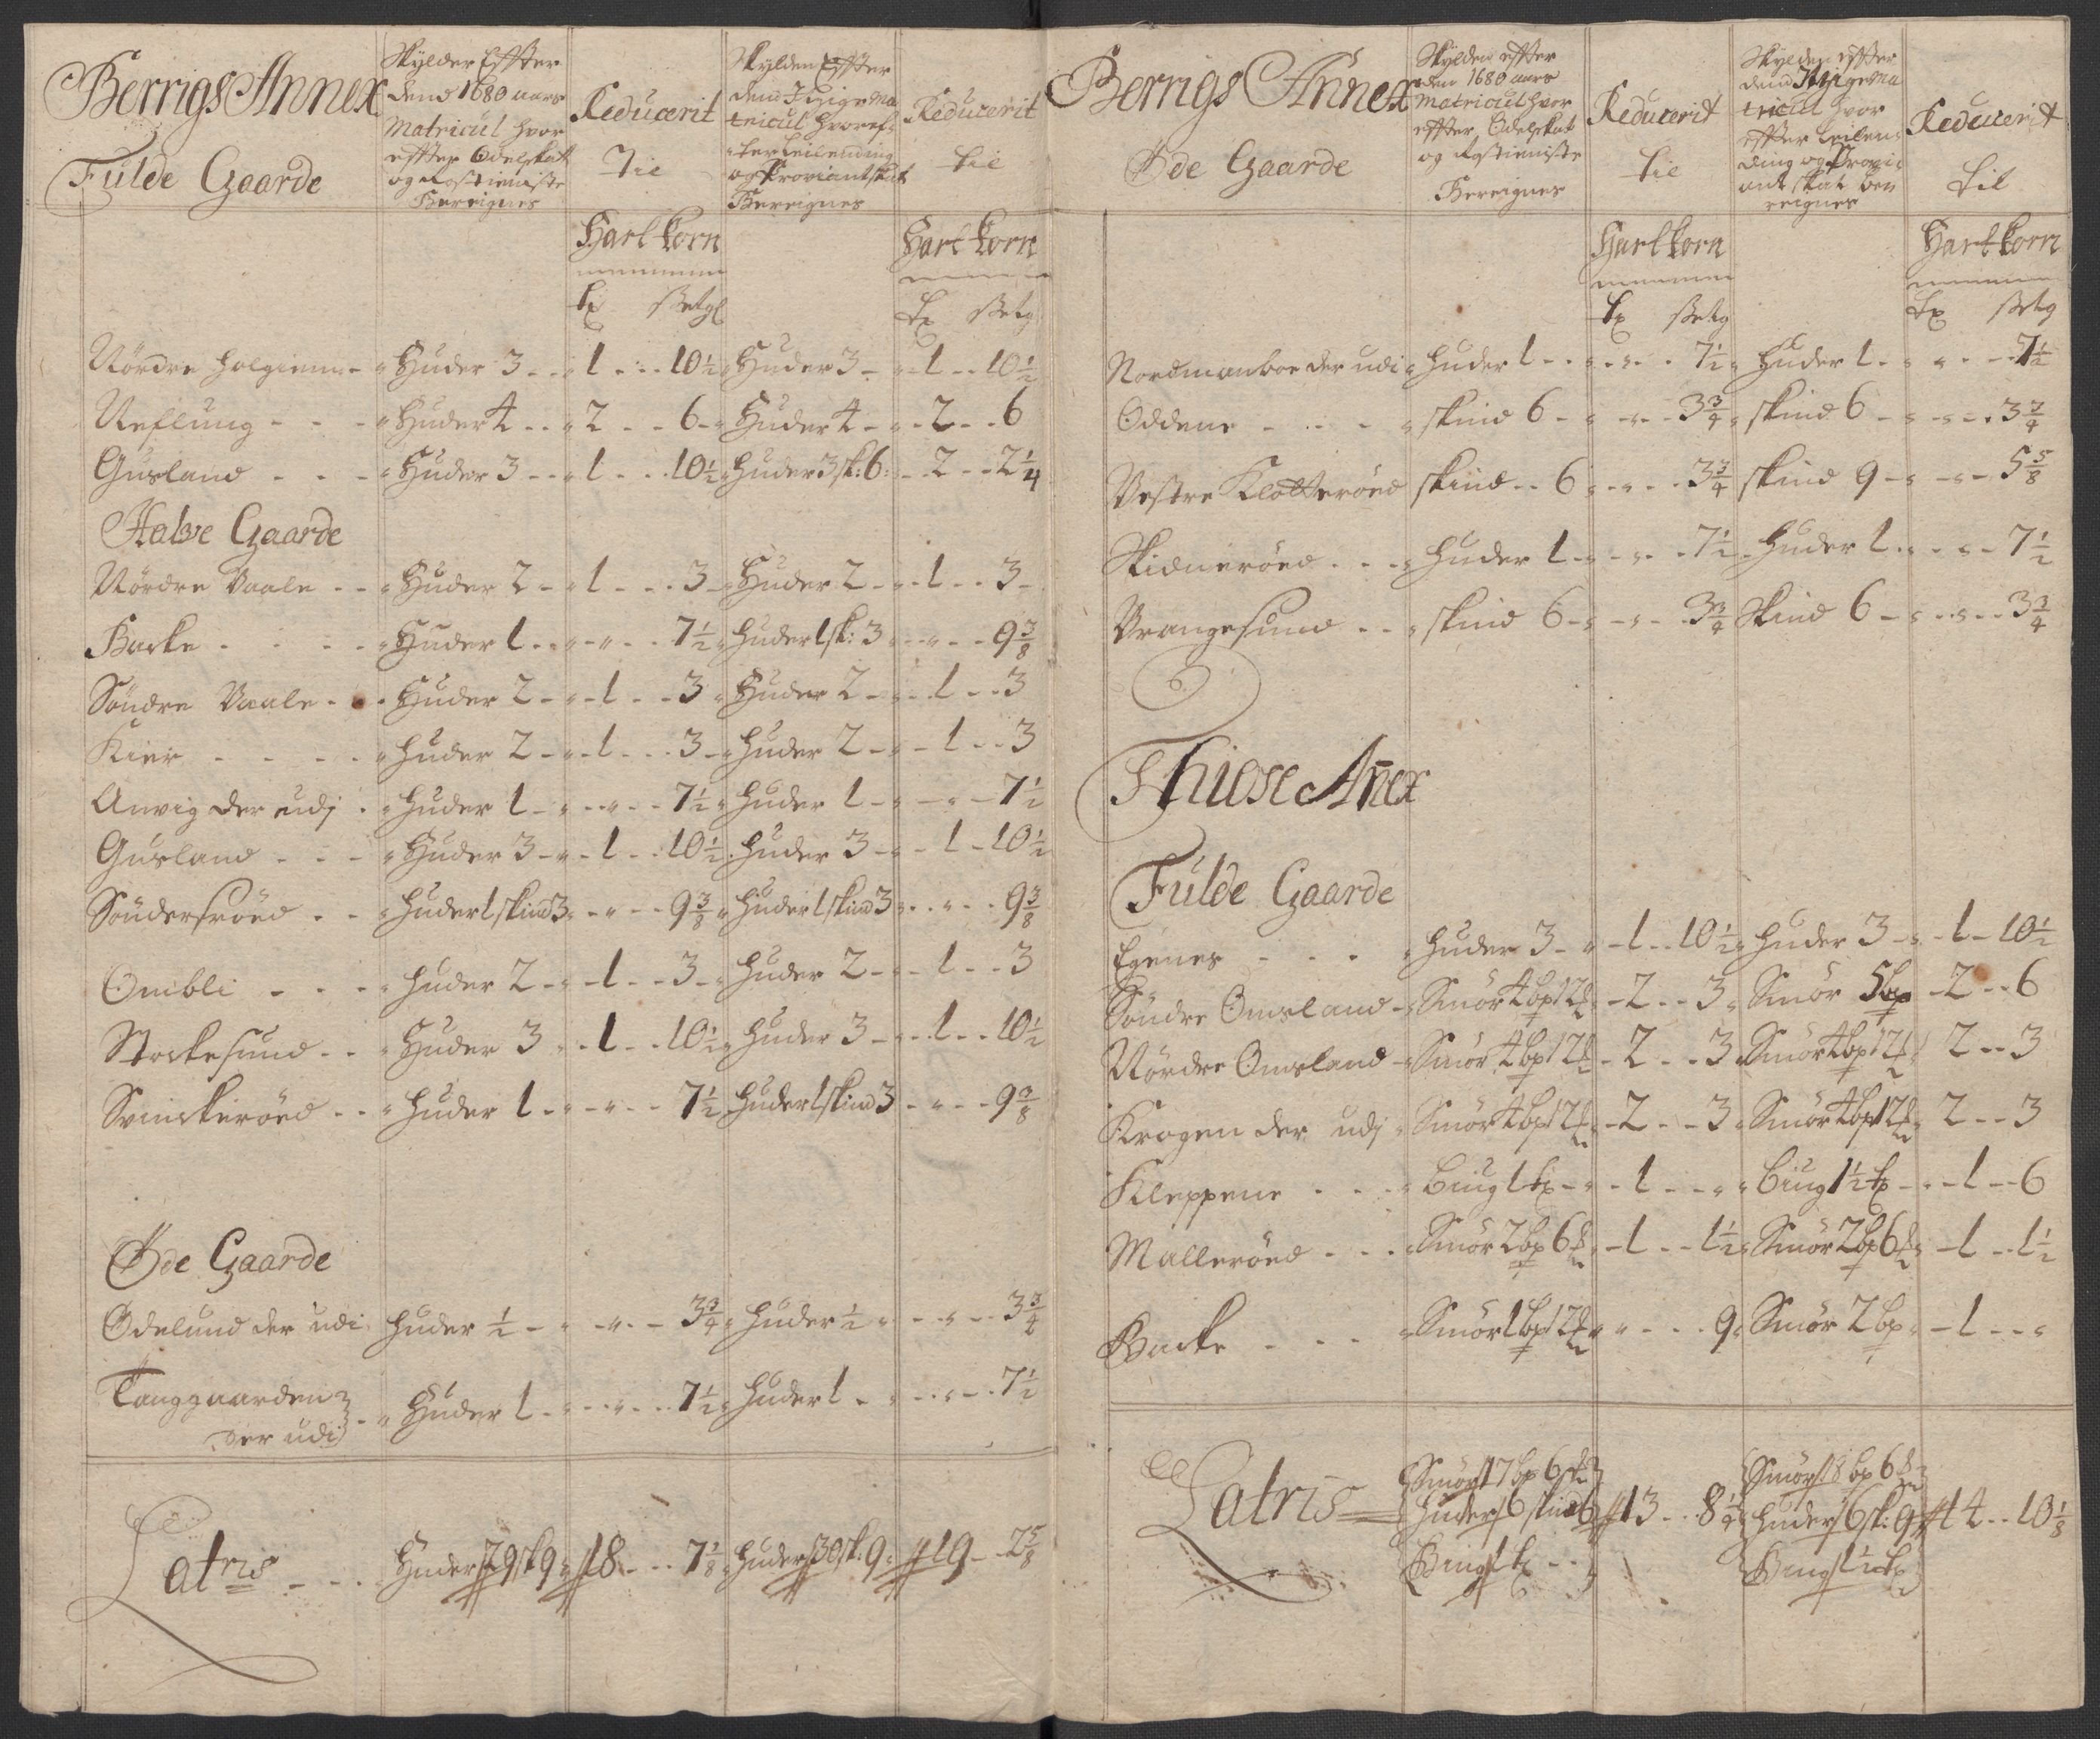 Berrigs Annex
Fulde Gaarde
Skylder Effter
dend 1680 aars
Matricul hvor
effter Odelskat
og Rostieniste
Bereignes
Reducerit
Til
Skylden Effter
dend Itzige Ma
tricul hvoref-
ter Leilending
og Proviantskat
Bereignes
Reducerit
til
Hart korn
Hart korn
tr settg
tr settg
Nördre Holgiem - Huder 3 - 1 - 10½ Huder 3 - 1 - 10½
Neflung - Huder 4 - 2 - 6 - Huder 4 - 2 - 6
Gusland - Huder 3 - 1 - 10½ Huder 3 sk: 6: - 2 - 2¼
Halve Gaarde
Nördre Vaale - Huder 2 - 1 - 3 - Huder 2 - 1 - 3
Backe - Huder 1 - " - 7½ Huder 1 sk: 3 - " - 9⅜
Söndre Vaale - Huder 2 - 1 - 3 - Huder 2 - 1 - 3
Kier - Huder 2 - 1 - 3 - Huder 2 - 1 - 3
Anvig der udj - Huder 1 - " - 7½ Huder 1 - " - 7½
Gusland - Huder 3 - 1 - 10½ Huder 3 - 1 - 10½
Söndersröed - Huder 1 skind 3 - " - 9⅜ Huder 1 skind 3 - " - 9⅜
Ombli - Huder 2 - 1 - 3 - Huder 2 - 1 - 3
Stockesund - Huder 3 - 1 - 10½ Huder 3 - 1 - 10½
Svinskeröed - Huder 1 - " - 7½ Huder 1 skind 3 - " - 9⅜
Öde Gaarde
Ödelund der udi Huder ½ - " - 3¾ Huder ½ - " - 3¾
Tanggaarden
der udi - Huder 1 - " - 7½ Huder 1 - " - 7½
Latris - Huder 29 sk 9: 18 - 7⅛ Huder 30 sk: 9: 19 - 2⅝
Berrigs Annex
Öde Gaarde
Skylden effter
den 1680 aars
Matricul hvor
effter Odelskat
og Rostieniste
Bereignes
Reducerit
til
Skylden effter
dend Itzige Ma
tricul hvor
effter Leilen-
ding og Provi-
ant skat ber
reignes
Reducerit
til
Hart korn
Hart korn
tr settg
tr settg
Nordmanboe der udi Huder 1 - " - 7½ Huder 1 - " - 7½
Oddene - skind 6 - " - 3¾ skind 6 - " - 3¾
Vestre Klatteröed skind 6 - " - 3¾ skind 9 - " - 5⅝
Skidneröed - Huder 1 - " - 7½ Huder 1 - " - 7½
Vrangesund - skind 6 - " - 3¾ Skind 6 - " - 3¾
Thiöse Añex
Fulde Gaarde
Egenes - Huder 3 - 1 - 10½ Huder 3 - 1 - 10½
Söndre Omsland - Smör 4 bp 12 ℔ - 2 - 3 Smör 5 bp - 2 - 6
Nördre Omsland - Smör 4 bp 12 ℔ - 2 - 3 Smör 4 bp 12 ℔ 2 - 3
Krogen der udj Smör 4 bp 12 ℔ - 2 - 3 Smör 4 bp 12 ℔ 2 - 3
Kleppene - Biug 1 tr - 1 - " Biug 1½ tr - 1 - 6
Malleröed - Smör 2 bp 6 ℔ - 1 - 1½ Smör 2 bp 6 ℔ - 1 - 1½
Backe - Smör 1 bp 12 ℔ " - 9 Smör 2 bp - 1 - "
Latris
Smör 17 bp 6 ℔
Huder 6 skind 6 13 - 8¼
Biug 1 tr
Smör 18 bp 6 ℔
Huder 6 sk: 9 14 - 10⅛
Biug 1½ tr